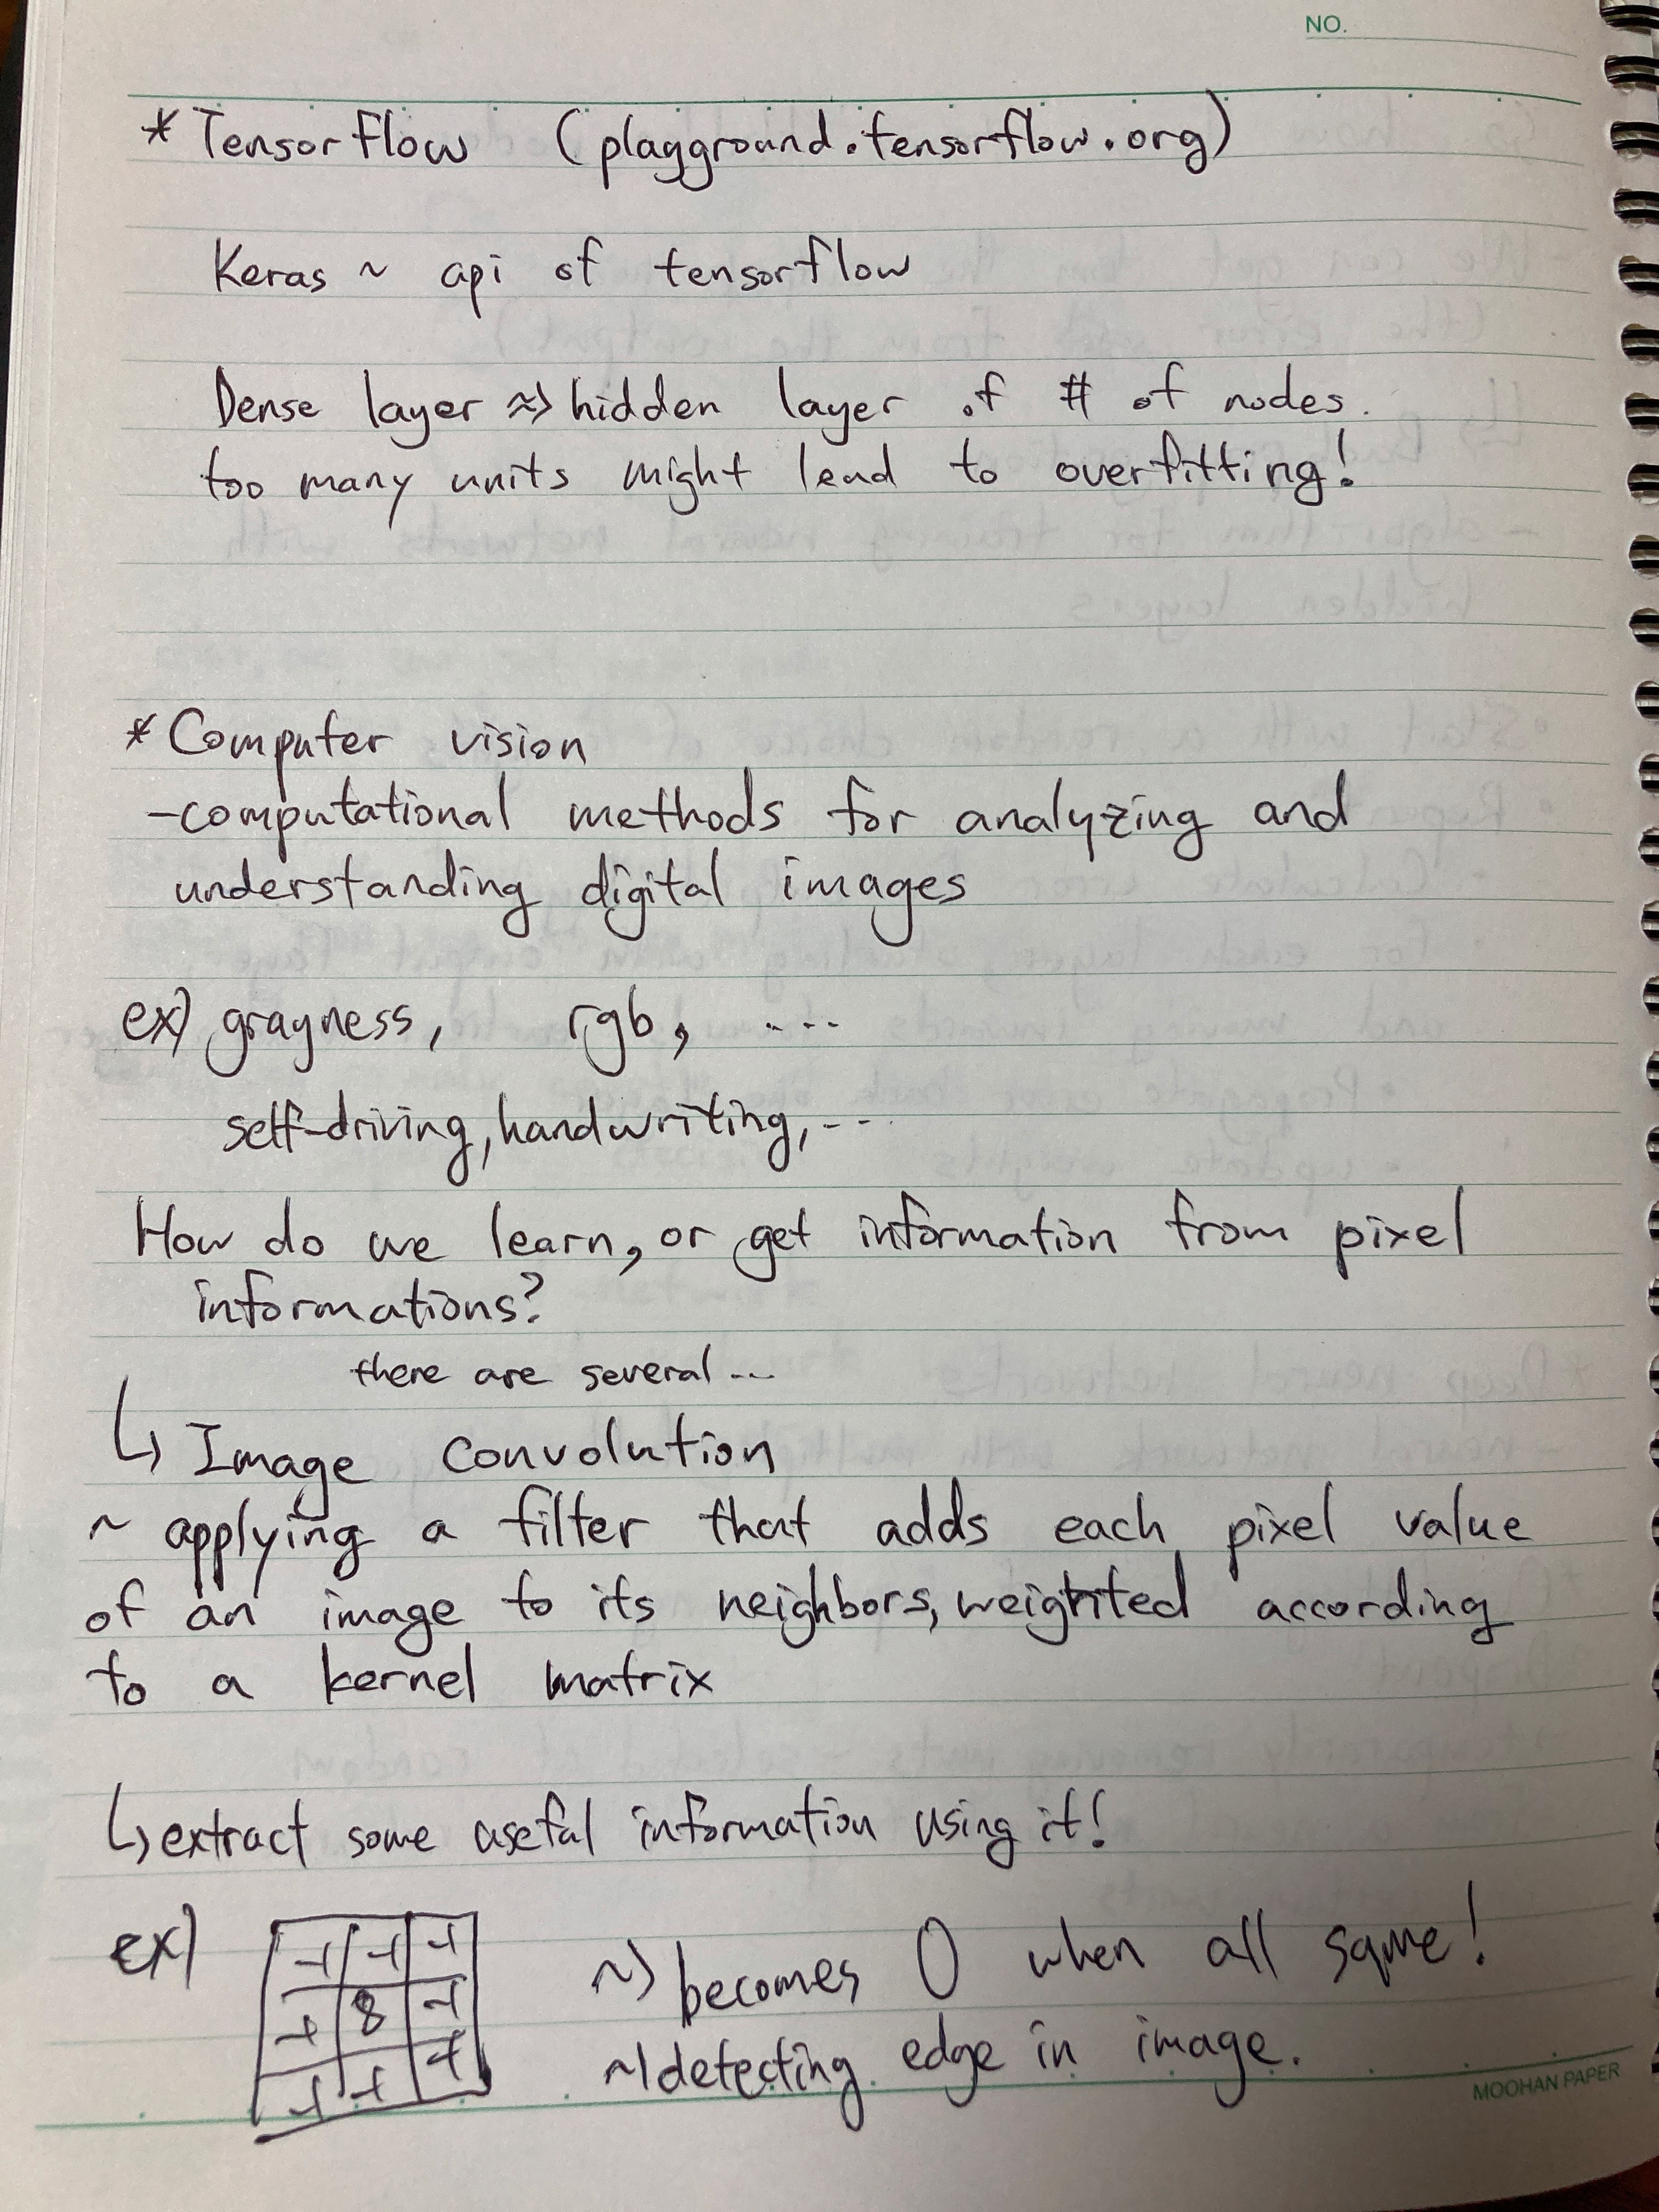 NO.
* Tensorflow (playground.tensorflow.org)
Keras ~ api of tensorflow
Dense layer ≈> hidden layer of # of nodes.
too many units might lead to overfitting!
* Computer vision
-computational methods for analyzing and
understanding digital images
ex) grayness, rgb, ....
self-driving, handwriting, ---
How do we learn, or get information from pixel
informations?
there are several ...
↳ Image convolution
~ applying a filter that adds each pixel value
of an image to its neighbors, weighted according
to a kernel matrix
↳ extract some useful information using it!
ex) -1 -1 -1 ~> becomes 0 when all same!
-1 8 -1
-1 -1 -1 ~> detecting edge in image.
MOOHAN PAPER